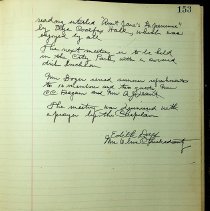 153
reading entitled "Aunt Jane's Experience"
by Mrs Hale, which was
enjoyed by all.
The next meeting is to be held
in the City Park, with a covered
dish luncheon.
Mrs Boyer served summer refreshments
to 12 members and two guests, Mrs
CC Pearson and Mrs A
The meeting was dismissed with
a prayer by the Chaplain
Edith
Mrs